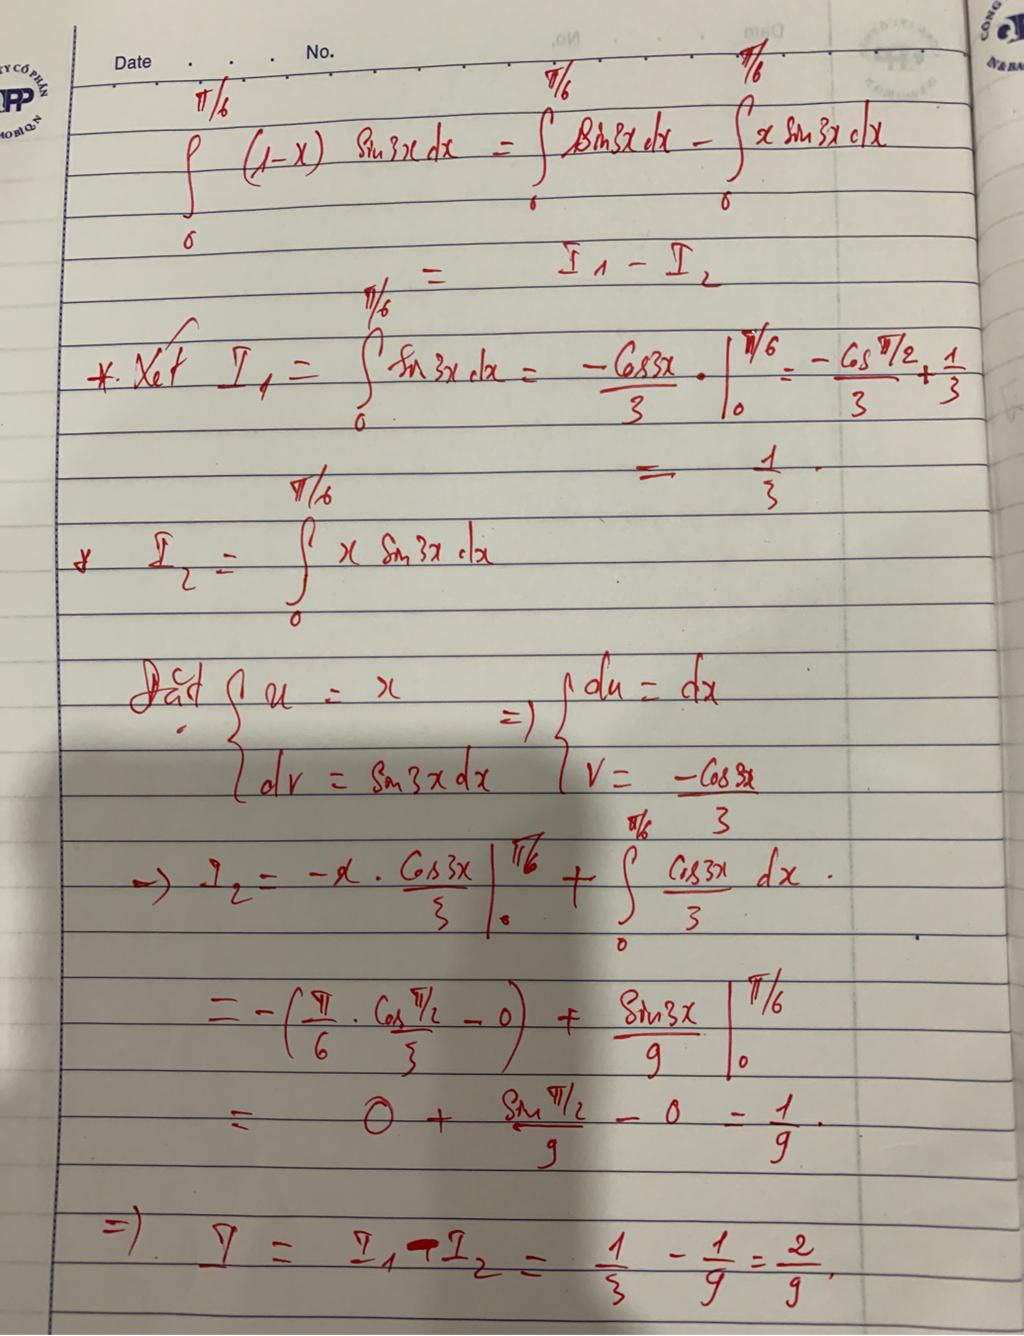 Date . . . No.
∫₀^{π/6} (1-x) Sin3x dx = ∫₀^{π/6} Sin3x dx - ∫₀^{π/6} x Sin3x dx
= I₁ - I₂
*. Xét I₁ = ∫₀^{π/6} Sin 3x dx = -Cos3x/3 . |₀^{π/6} = -Cos π/2 / 3 + 1/3
= 1/3 .
* I₂ = ∫₀^{π/6} x Sin3x dx
Đặt { u = x ; dv = Sin3x dx => { du = dx ; v = -Cos3x/3
-> I₂ = -x . Cos3x/3 |₀^{π/6} + ∫₀^{π/6} Cos3x/3 dx .
= -(π/6 . Cos π/2 / 3 - 0) + Sin3x/9 |₀^{π/6}
= 0 + Sin π/2 / 9 - 0 = 1/9 .
=> I = I₁ - I₂ = 1/3 - 1/9 = 2/9 .